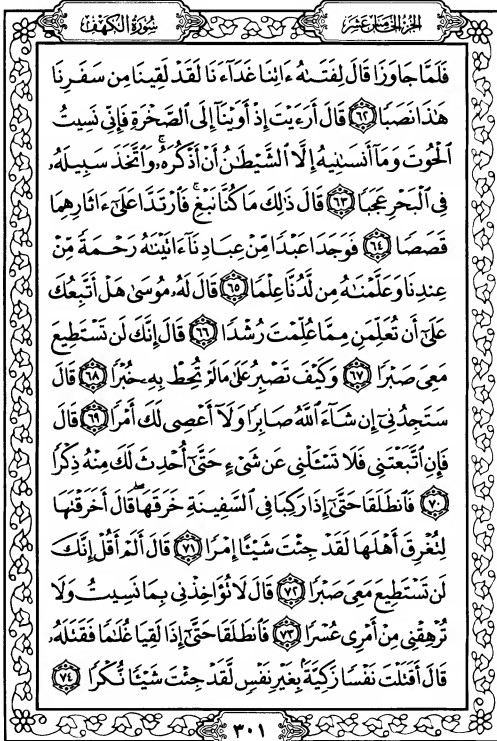 الجزء الخامس عشر سورة الكهف
فَلَمَّا جَاوَزَا قَالَ لِفَتَىٰهُ ءَاتِنَا غَدَآءَنَا لَقَدْ لَقِينَا مِن سَفَرِنَا
هَٰذَا نَصَبًا ٦٢ قَالَ أَرَءَيْتَ إِذْ أَوَيْنَآ إِلَى ٱلصَّخْرَةِ فَإِنِّى نَسِيتُ
ٱلْحُوتَ وَمَآ أَنسَىٰنِيهُ إِلَّا ٱلشَّيْطَٰنُ أَنْ أَذْكُرَهُۥ ۚ وَٱتَّخَذَ سَبِيلَهُۥ
فِى ٱلْبَحْرِ عَجَبًا ٦٣ قَالَ ذَٰلِكَ مَا كُنَّا نَبْغِ ۚ فَٱرْتَدَّا عَلَىٰٓ ءَاثَارِهِمَا
قَصَصًا ٦٤ فَوَجَدَا عَبْدًا مِّنْ عِبَادِنَآ ءَاتَيْنَٰهُ رَحْمَةً مِّنْ
عِندِنَا وَعَلَّمْنَٰهُ مِن لَّدُنَّا عِلْمًا ٦٥ قَالَ لَهُۥ مُوسَىٰ هَلْ أَتَّبِعُكَ
عَلَىٰٓ أَن تُعَلِّمَنِ مِمَّا عُلِّمْتَ رُشْدًا ٦٦ قَالَ إِنَّكَ لَن تَسْتَطِيعَ
مَعِىَ صَبْرًا ٦٧ وَكَيْفَ تَصْبِرُ عَلَىٰ مَا لَمْ تُحِطْ بِهِۦ خُبْرًا ٦٨ قَالَ
سَتَجِدُنِىٓ إِن شَآءَ ٱللَّهُ صَابِرًا وَلَآ أَعْصِى لَكَ أَمْرًا ٦٩ قَالَ
فَإِنِ ٱتَّبَعْتَنِى فَلَا تَسْـَٔلْنِى عَن شَىْءٍ حَتَّىٰٓ أُحْدِثَ لَكَ مِنْهُ ذِكْرًا
٧٠ فَٱنطَلَقَا حَتَّىٰٓ إِذَا رَكِبَا فِى ٱلسَّفِينَةِ خَرَقَهَا ۖ قَالَ أَخَرَقْتَهَا
لِتُغْرِقَ أَهْلَهَا لَقَدْ جِئْتَ شَيْـًٔا إِمْرًا ٧١ قَالَ أَلَمْ أَقُلْ إِنَّكَ
لَن تَسْتَطِيعَ مَعِىَ صَبْرًا ٧٢ قَالَ لَا تُؤَاخِذْنِى بِمَا نَسِيتُ وَلَا
تُرْهِقْنِى مِنْ أَمْرِى عُسْرًا ٧٣ فَٱنطَلَقَا حَتَّىٰٓ إِذَا لَقِيَا غُلَٰمًا فَقَتَلَهُۥ
قَالَ أَقَتَلْتَ نَفْسًا زَكِيَّةًۢ بِغَيْرِ نَفْسٍ لَّقَدْ جِئْتَ شَيْـًٔا نُّكْرًا ٧٤
٣٠١